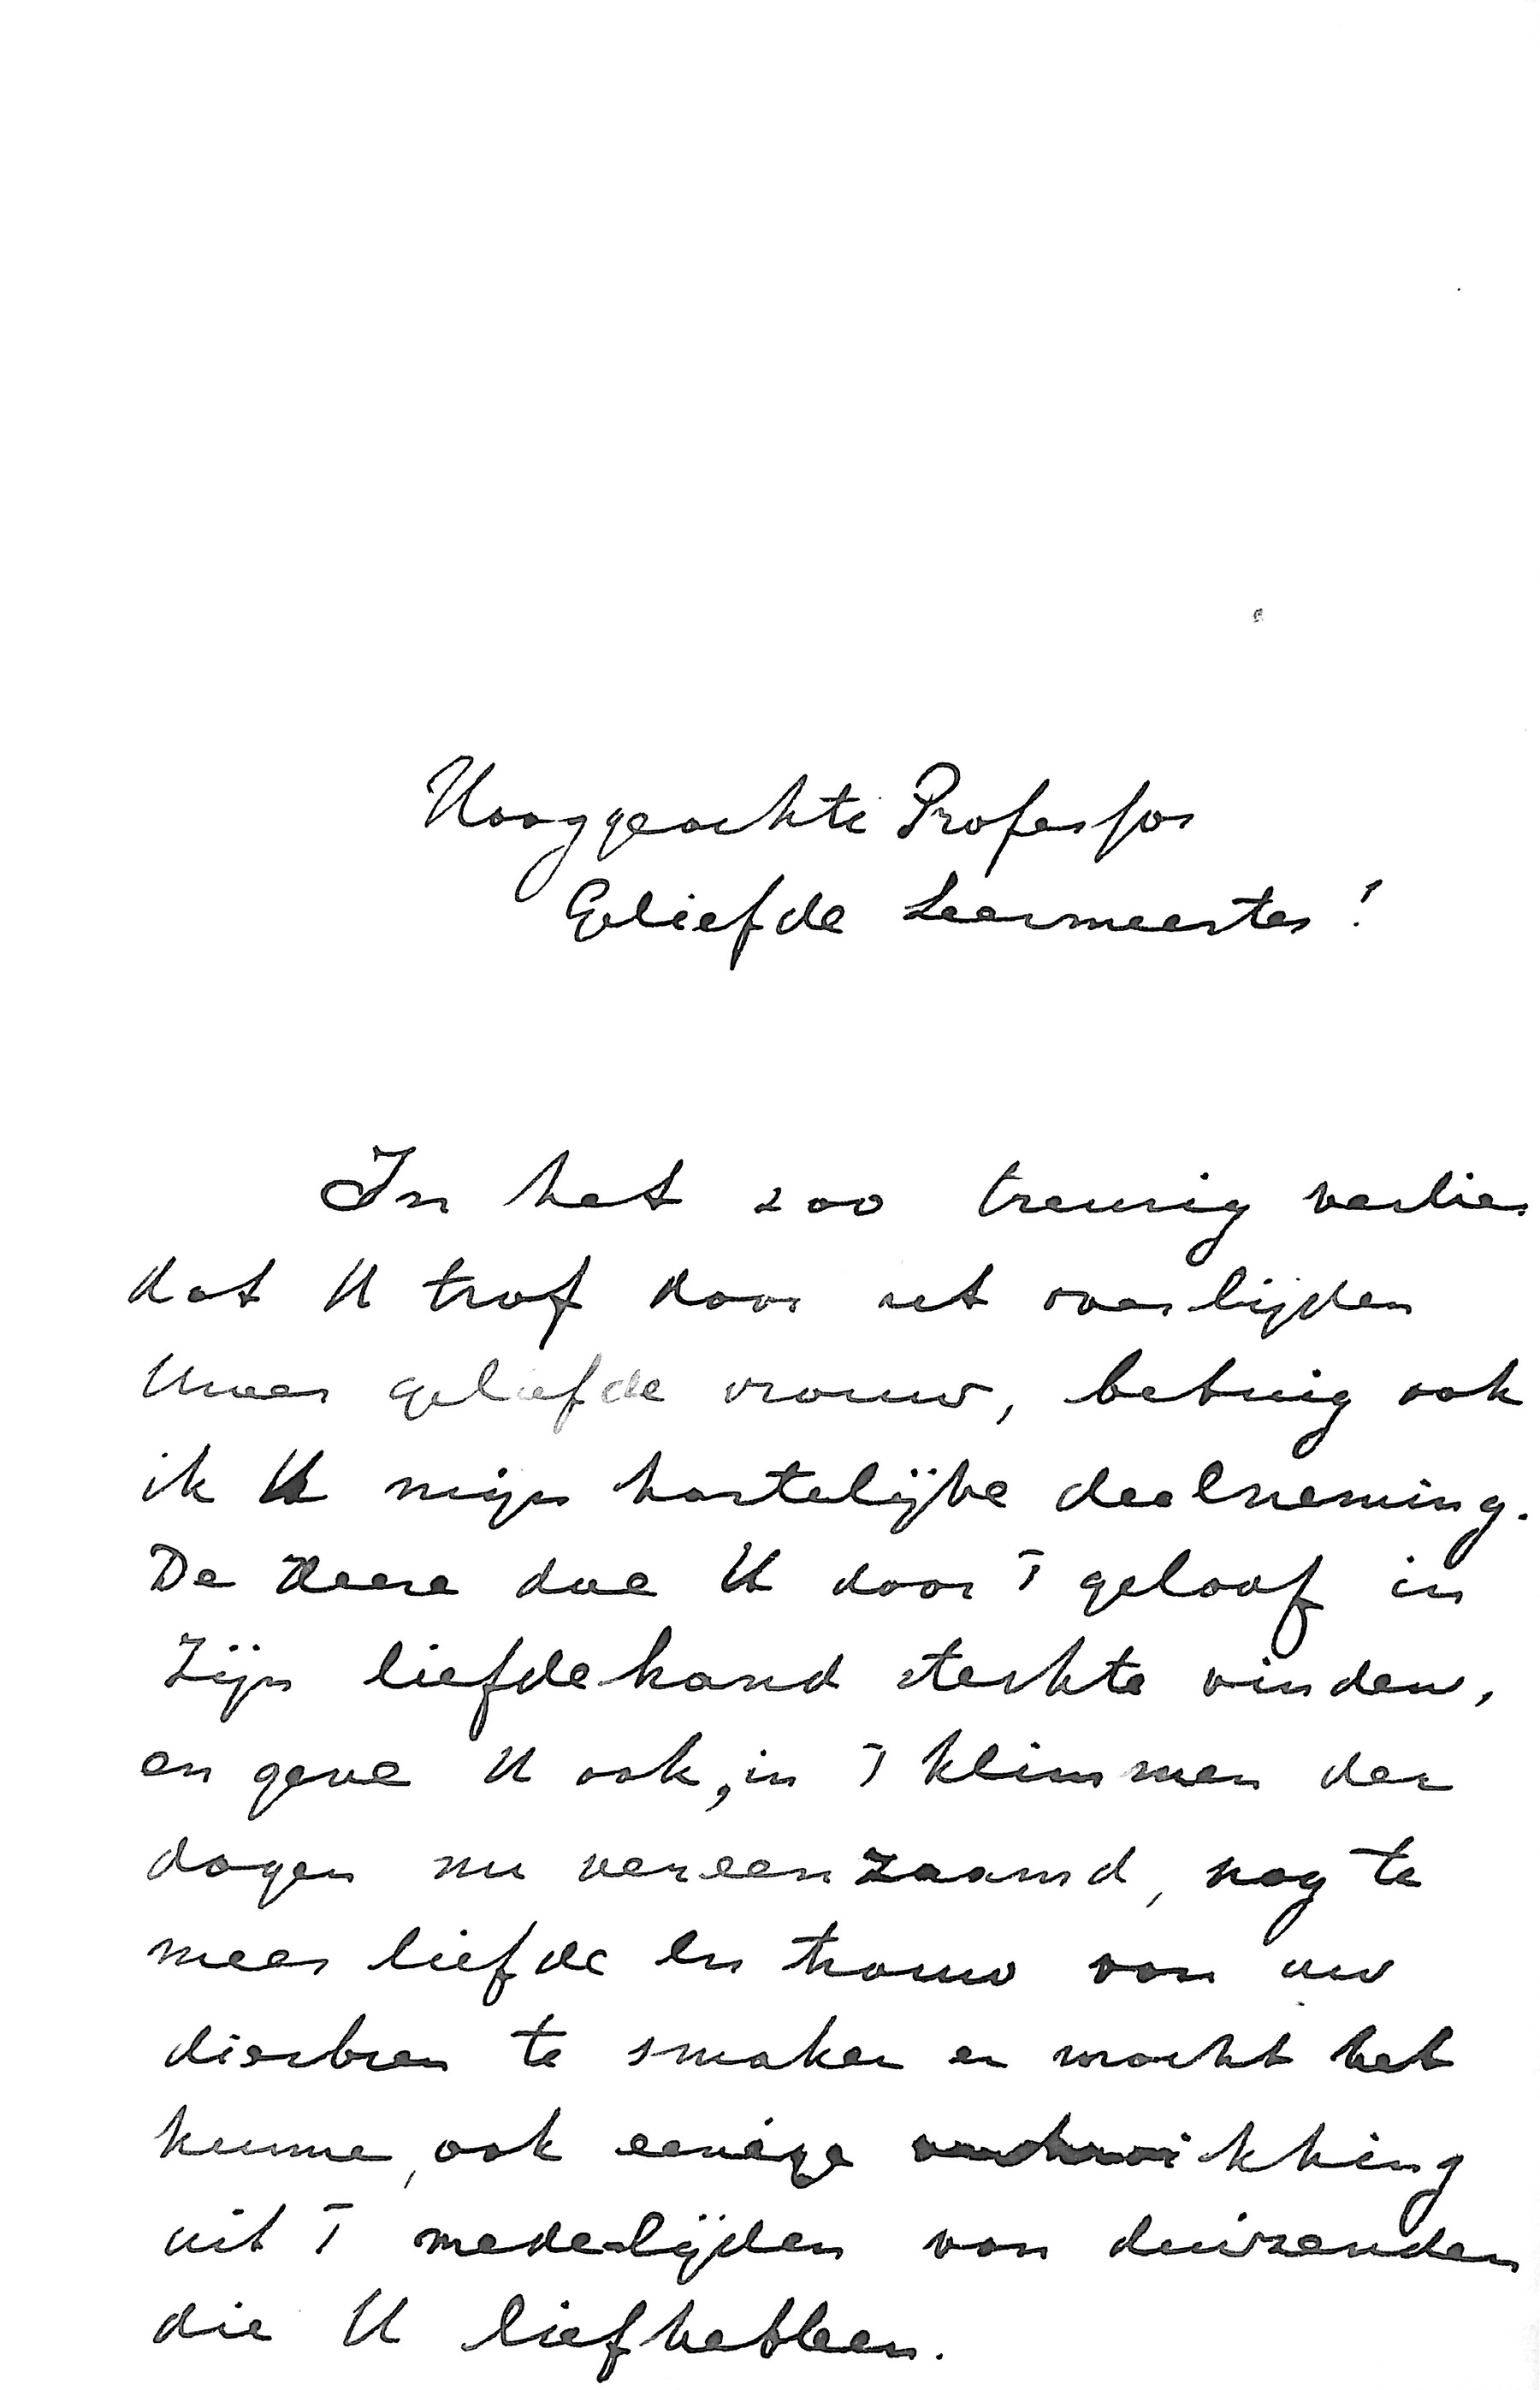 Hooggeachte Professor
Geliefde Leermeester!
In het zoo treurig verlies
dat U trof door het overlijden
Uwer geliefde vrouw, betuig ook
ik U mijn hartelijke deelneming.
De Heere doe U door 't geloof in
Zijn liefdehand sterkte vinden,
en geve U ook, in 't klimmen der
dagen nu vereenzaamd, nog te
meer liefde en trouw van uw
dierbren te smaken en mocht het
kunne, ook eenige verkwikking
uit 't mede-lijden van duizenden
die U liefhebben.